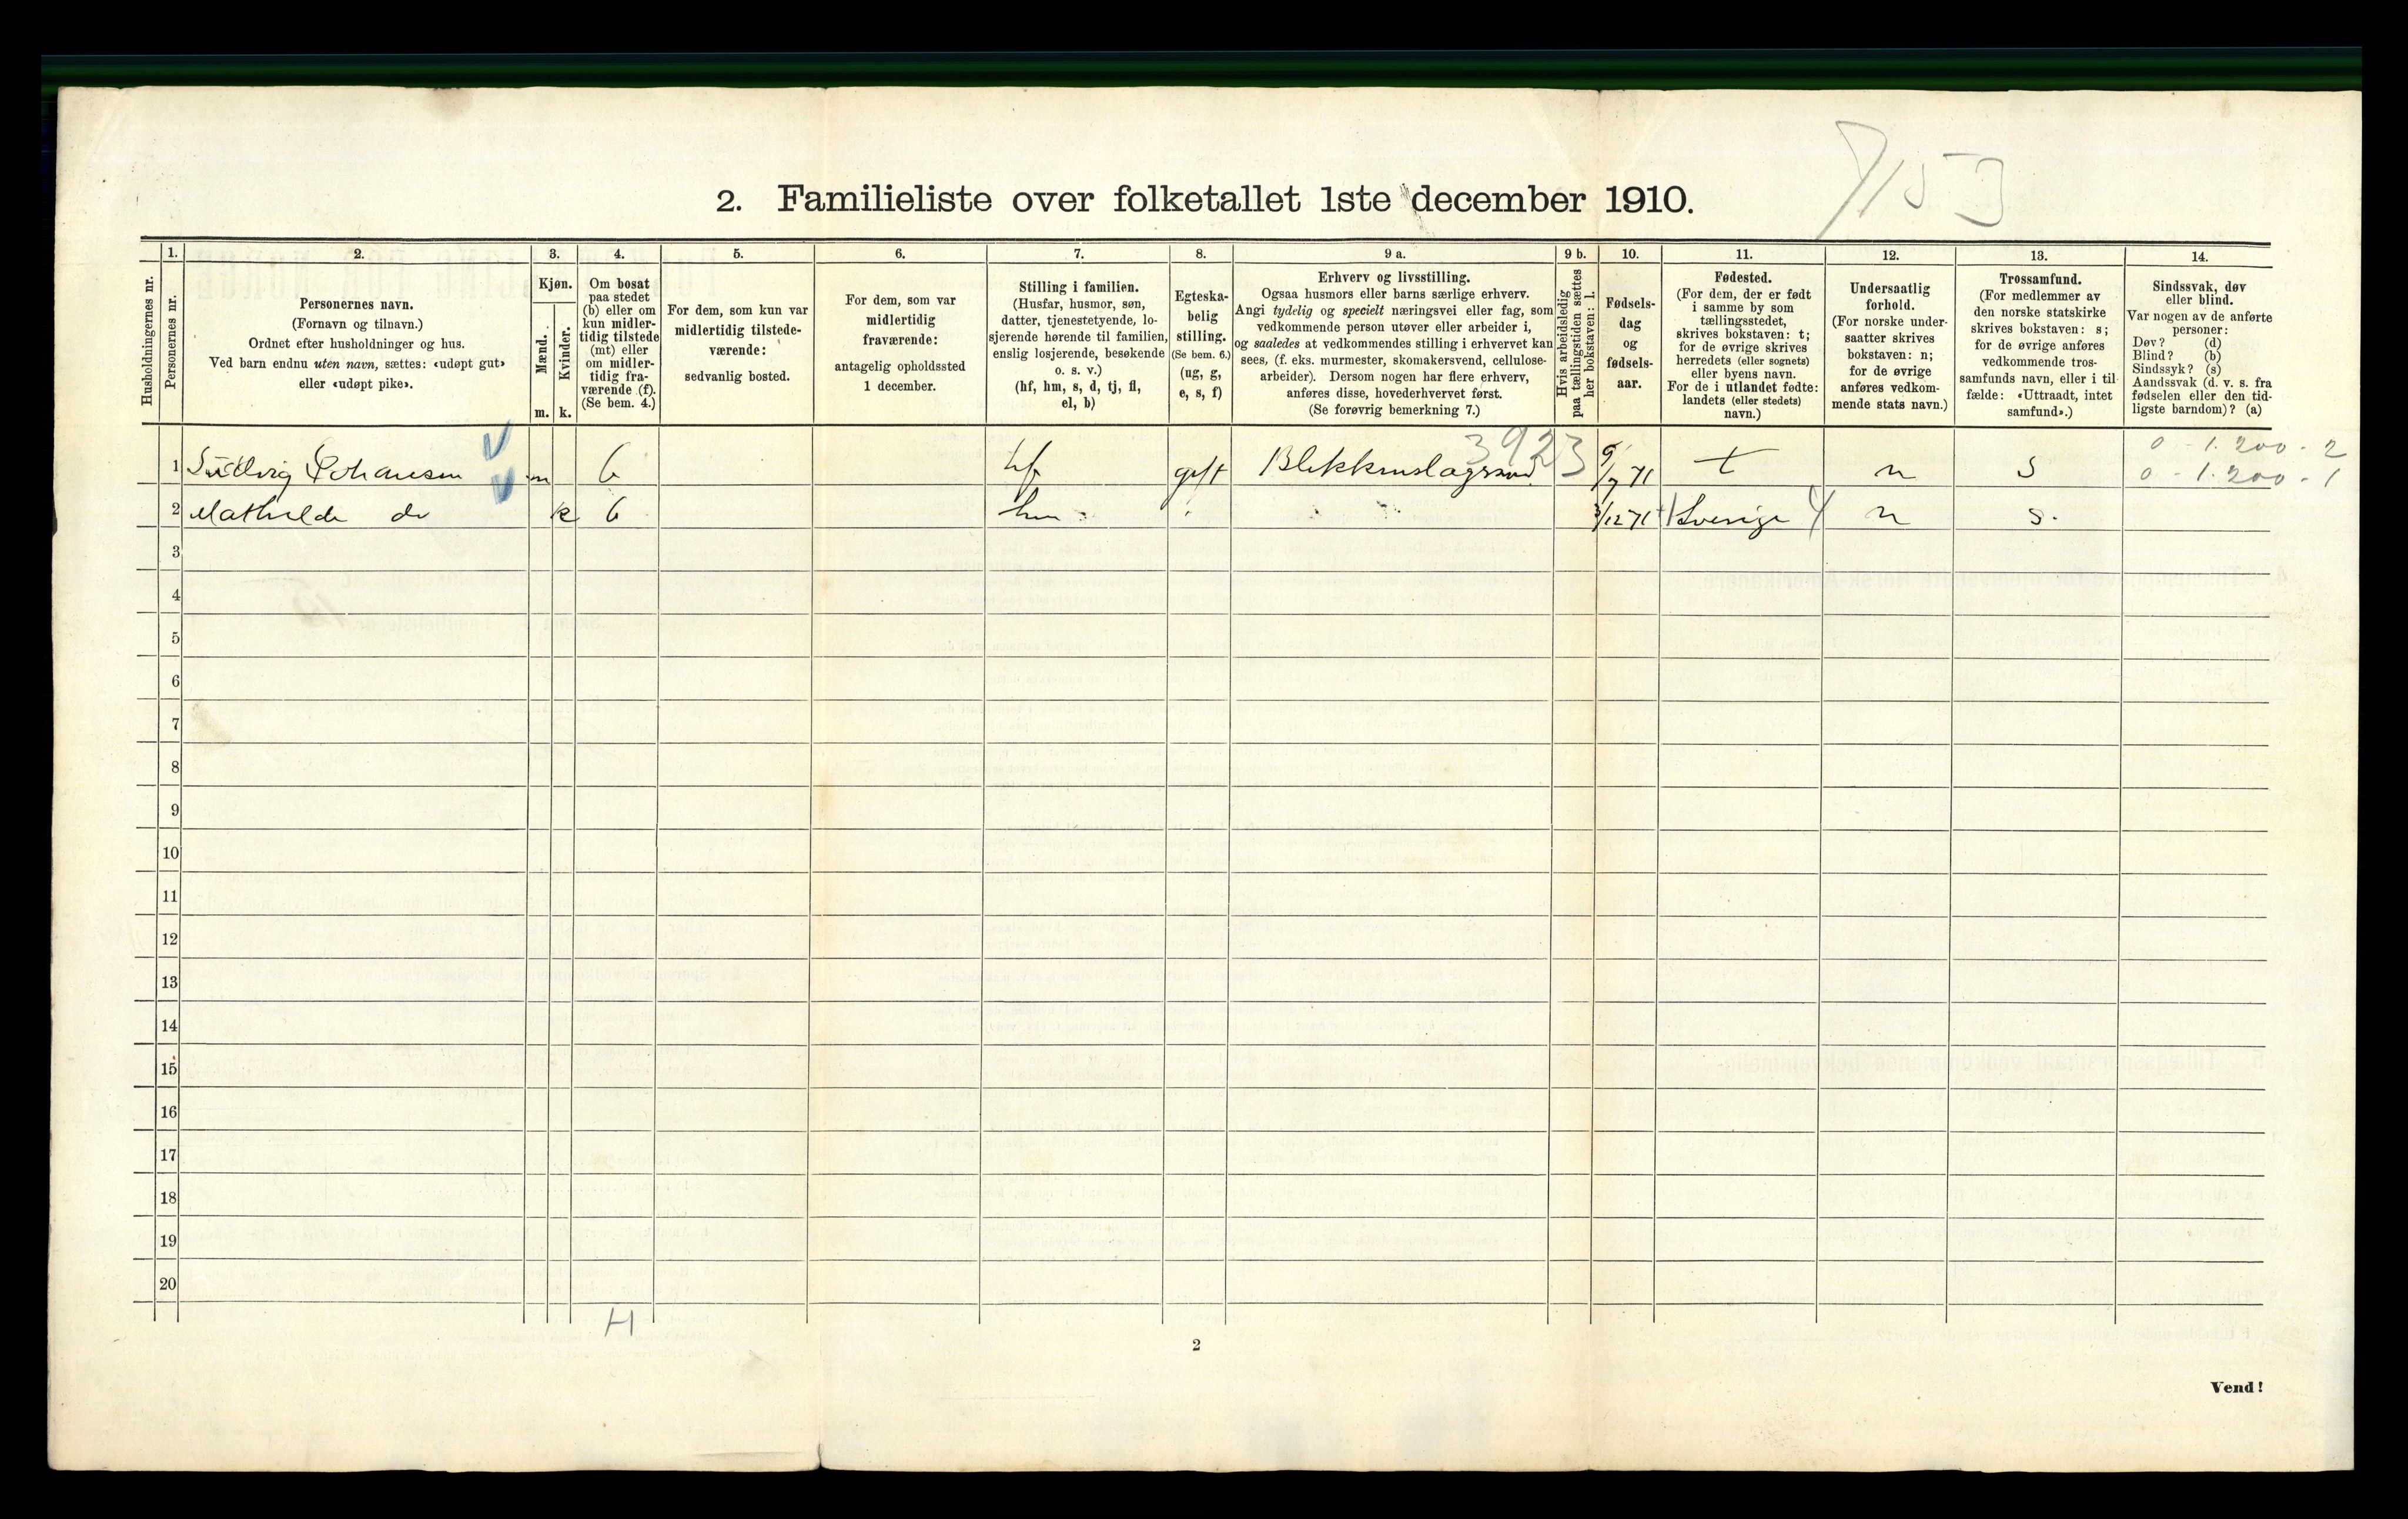 7153
2. Familieliste over folketallet 1ste december 1910.
Husholdningernes nr.
1.
Personernes nr.
2.
Personernes navn.
(Fornavn og tilnavn.)
Ordnet efter husholdninger og hus.
Ved barn endnu uten navn, sættes: «udøpt gut»
eller «udøpt pike».
3.
Kjøn.
Mænd.
Kvinder.
m. k.
4.
Om bosat
paa stedet
(b) eller om
kun midler-
tidig tilstede
(mt) eller
om midler-
tidig fra-
værende (f).
(Se bem. 4.)
5.
For dem, som kun var
midlertidig tilstede-
værende:
sedvanlig bosted.
6.
For dem, som var
midlertidig
fraværende:
antagelig opholdssted
1 december.
7.
Stilling i familien.
(Husfar, husmor, søn,
datter, tjenestetyende, lo-
sjerende hørende til familien,
enslig losjerende, besøkende
o. s. v.)
(hf, hm, s, d, tj, fl,
el, b)
8.
Egteska-
belig
stilling.
(Se bem. 6.)
(ug, g,
e, s, f)
9 a.
Erhverv og livsstilling.
Ogsaa husmors eller barns særlige erhverv.
Angi tydelig og specielt næringsvei eller fag, som
vedkommende person utøver eller arbeider i,
og saaledes at vedkommendes stilling i erhvervet kan
sees, (f. eks. murmester, skomakersvend, cellulose-
arbeider). Dersom nogen har flere erhverv,
anføres disse, hovederhvervet først.
(Se forøvrig bemerkning 7.)
9 b.
Hvis arbeidsledig
paa tællingstiden sættes
her bokstaven: l.
10.
Fødsels-
dag
og
fødsels-
aar.
11.
Fødested.
(For dem, der er født
i samme by som
tællingsstedet,
skrives bokstaven: t;
for de øvrige skrives
herredets (eller sognets)
eller byens navn.
For de i utlandet fødte:
landets (eller stedets)
navn.)
12.
Undersaatlig
forhold.
(For norske under-
saatter skrives
bokstaven: n;
for de øvrige
anføres vedkom-
mende stats navn.)
13.
Trossamfund.
(For medlemmer av
den norske statskirke
skrives bokstaven: s;
for de øvrige anføres
vedkommende tros-
samfunds navn, eller i til-
fælde: «Uttraadt, intet
samfund».)
14.
Sindssvak, døv
eller blind.
Var nogen av de anførte
personer:
Døv? (d)
Blind? (b)
Sindssyk? (s)
Aandssvak (d. v. s. fra
fødselen eller den tid-
ligste barndom)? (a)
3923
0 - 1.200 - 2
1 Ludvig Johansen m b hf gift 9/7 71 t n s 0 - 1.200 - 1
2 Mathilde do k b hm 3/12 71 Sverige n s.
3
4
5
6
7
8
9
10
11
12
13
14
15
16
17
18
19
20
H
2
Vend!